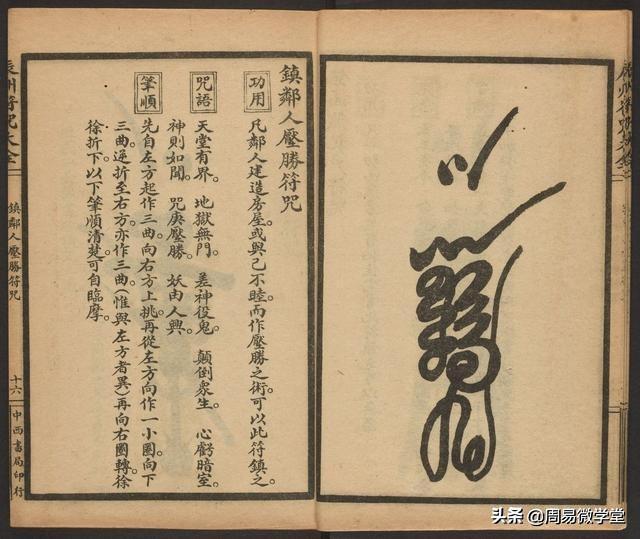 鎮鄰人壓勝符咒
功用
凡鄰人建造房屋。或與己不睦。而作壓勝之術。可以此符鎮之。
咒語
天堂有界 地獄無門 差神役鬼 顛倒衆生 心虧暗室
神則如聞 咒庚壓勝 妖由人興
筆順
先自左方起作三曲。向右方上挑。再從左方向作一小圈。向下
三曲。逆折至右方。亦作三曲。(惟與左方者異)再向右圈轉。徐
徐折下。以下筆順清楚。可自臨摩。
辰州符咒大全
鎮鄰人壓勝符咒
十六
中西書局印行
头条 @周易微学堂